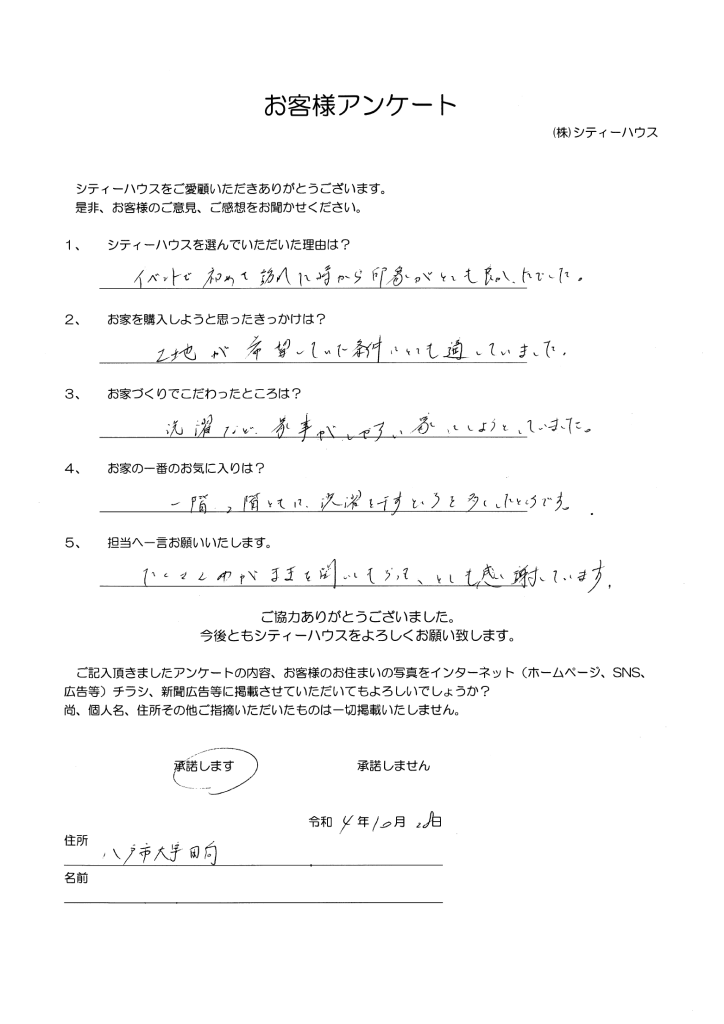 お客様アンケート
(株)シティーハウス
シティーハウスをご愛顧いただきありがとうございます。
是非、お客様のご意見、ご感想をお聞かせください。
1、 シティーハウスを選んでいただいた理由は？
イベントで初めて訪れた時から印象がとても良かったでした。
2、 お家を購入しようと思ったきっかけは？
土地が希望していた条件にとても適していました。
3、 お家づくりでこだわったところは？
洗濯など、家事がしやすい家にしようとしていました。
4、 お家の一番のお気に入りは？
一階、2階ともに、洗濯を干すところを多くしたところです。
5、 担当へ一言お願いいたします。
たくさんわがままを聞いてもらって、とても感謝しています。
ご協力ありがとうございました。
今後ともシティーハウスをよろしくお願い致します。
ご記入頂きましたアンケートの内容、お客様のお住まいの写真をインターネット（ホームページ、SNS、
広告等）チラシ、新聞広告等に掲載させていただいてもよろしいでしょうか？
尚、個人名、住所その他ご指摘いただいたものは一切掲載いたしません。
承諾します 承諾しません
令和 4 年 10 月 28 日
住所 八戸市大字田向
名前